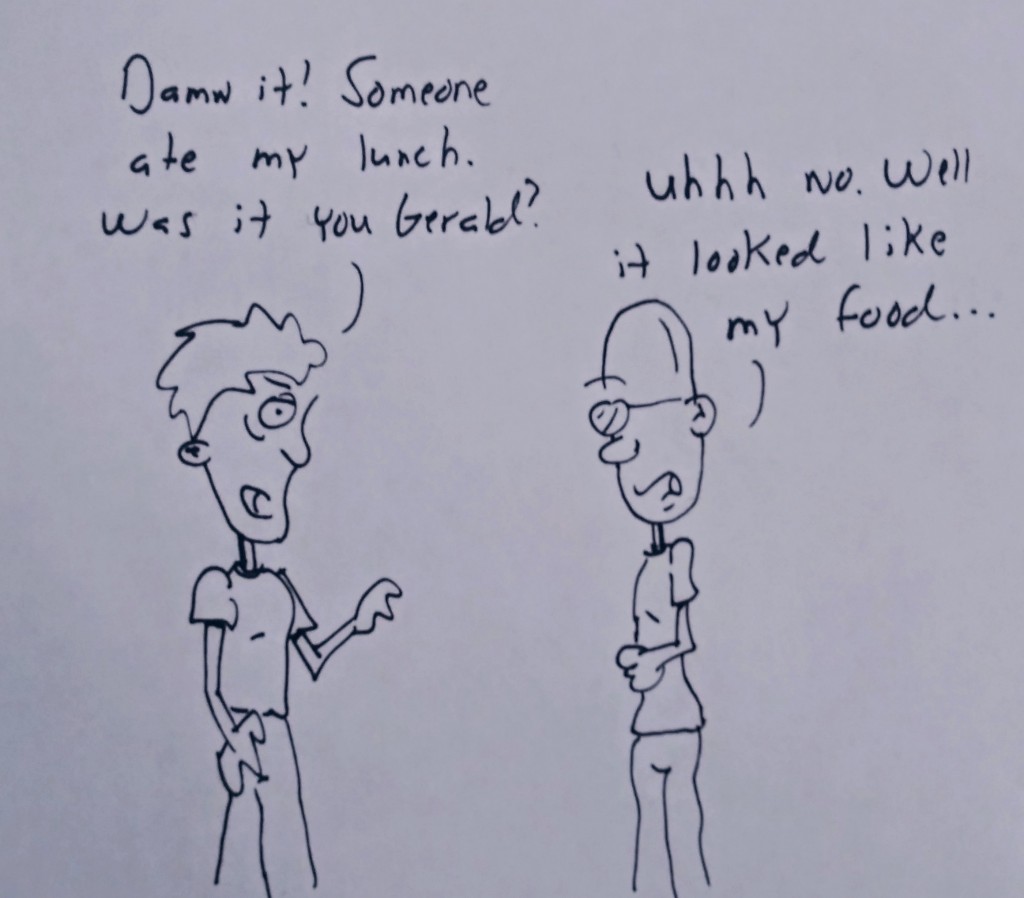 Damn it! Someone
ate my lunch.
Was it you Gerald?
uhhh no. Well
it looked like
my food...